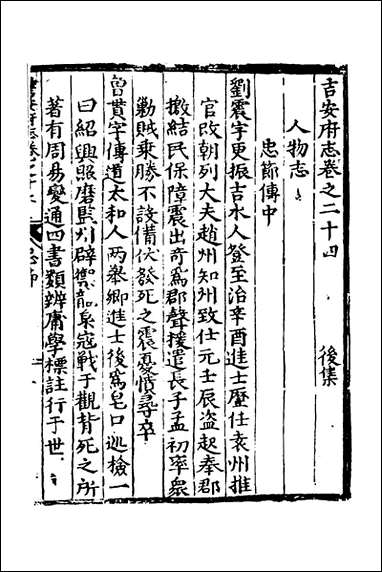 吉安府志卷之二十四　後集
人物志
忠節傳中
劉震字更振吉水人登至治辛酉進士歷任袁州推
官改朝列大夫趙州知州致仕元壬辰盗起奉郡
檄結民保障震出奇爲郡聲援遣長子孟初率衆
勦賊乗勝不設備伏發死之震憂憤尋卒
曾貫字傳道太和人两舉鄉進士後爲皂口巡檢一
曰紹興照磨監州辟禦龍泉寇戰于觀背死之所
著有周易變通四書類辨庸學標註行于世